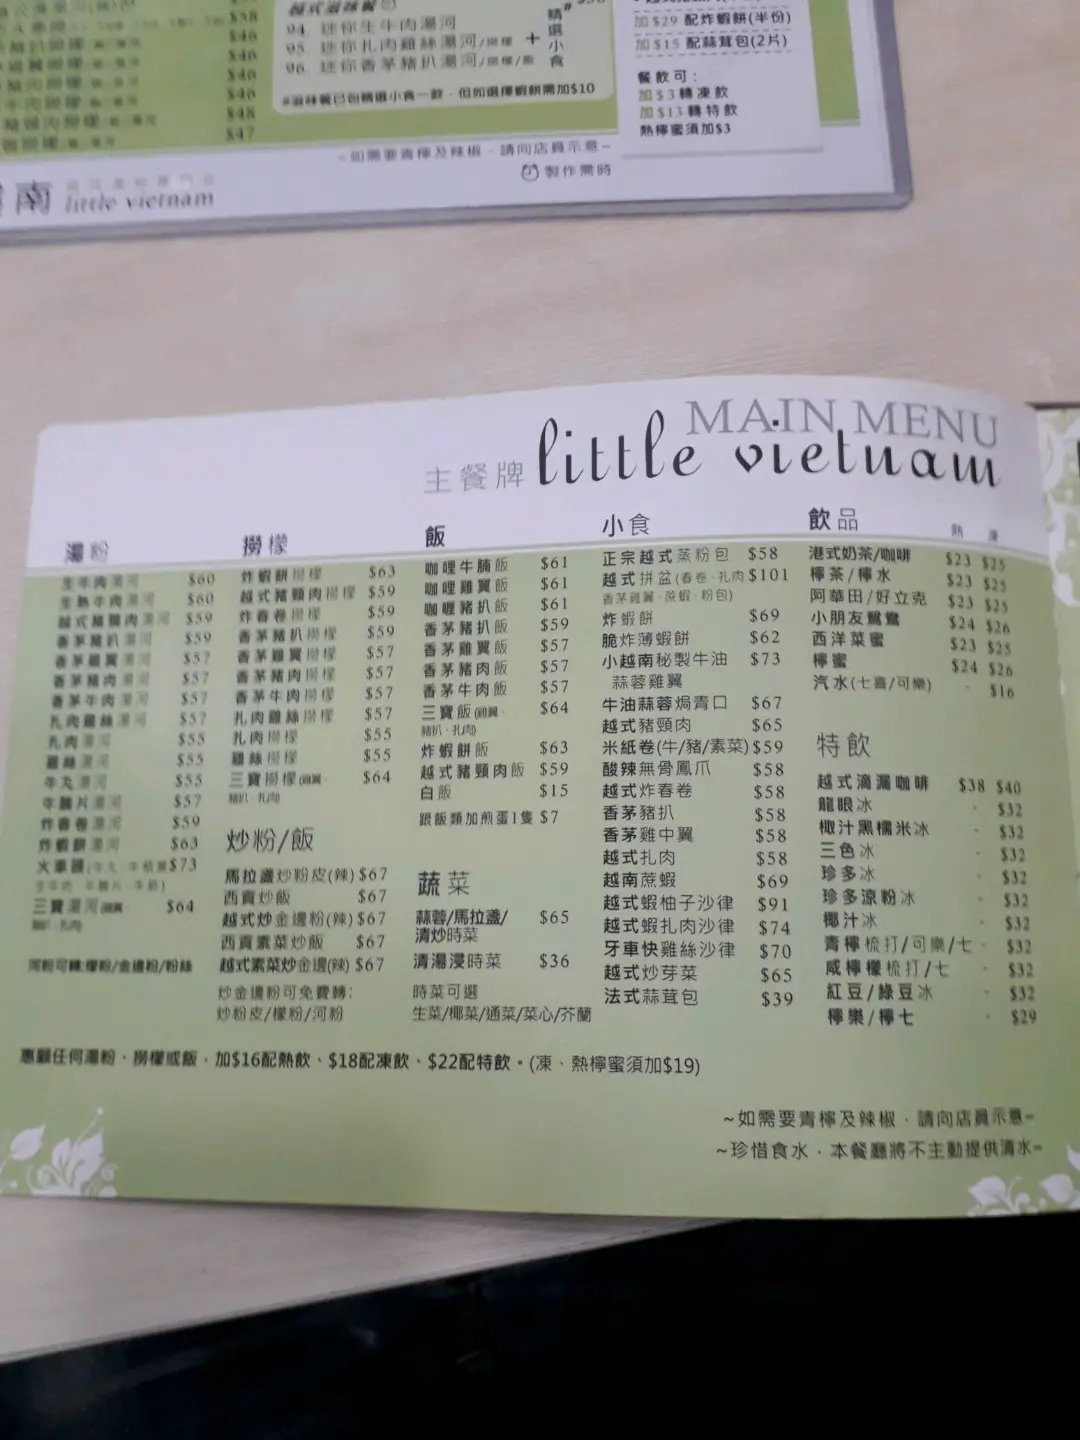 $38
$46
$46
$46
$46
$48
$47
94 迷你生牛肉湯河
95 迷你扎肉雞絲湯河/撈檬
96 迷你香茅豬扒湯河/撈檬/飯
+
精選小食
#滋味餐已包精選小食一款,但如選擇蝦餅需加$10
加$29 配炸蝦餅(半份)
加$15 配蒜茸包(2片)
餐飲可:
加$3轉凍飲
加$13轉特飲
熱檸蜜須加$3
~如需要青檸及辣椒,請向店員示意~
製作需時
南 little vietnam
MAIN MENU
主餐牌 little vietnam
湯粉
生牛肉湯河 $60
生熟牛肉湯河 $60
越式豬頸肉湯河 $59
香茅豬扒湯河 $59
香茅雞翼湯河 $57
香茅豬肉湯河 $57
香茅牛肉湯河 $57
扎肉雞絲湯河 $57
扎肉湯河 $55
雞絲湯河 $55
牛丸湯河 $55
牛腩片湯河 $57
炸春卷湯河 $59
炸蝦餅湯河 $63
火車頭 $73
三寶湯河 $64
河粉可轉:檬粉/金邊粉/粉絲
撈檬
炸蝦餅撈檬 $63
越式豬頸肉撈檬 $59
炸春卷撈檬 $59
香茅豬扒撈檬 $59
香茅雞翼撈檬 $57
香茅豬肉撈檬 $57
香茅牛肉撈檬 $57
扎肉雞絲撈檬 $57
扎肉撈檬 $55
雞絲撈檬 $55
三寶撈檬(雞翼· $64
豬扒·扎肉)
炒粉/飯
馬拉盞炒粉皮(辣) $67
西貢炒飯 $67
越式炒金邊粉(辣) $67
西貢素菜炒飯 $67
越式素菜炒金邊(辣) $67
炒金邊粉可免費轉:
炒粉皮/檬粉/河粉
飯
咖哩牛腩飯 $61
咖哩雞翼飯 $61
咖喱豬扒飯 $61
香茅豬扒飯 $59
香茅雞翼飯 $57
香茅豬肉飯 $57
香茅牛肉飯 $57
三寶飯(雞翼· $64
豬扒·扎肉)
炸蝦餅飯 $63
越式豬頸肉飯 $59
白飯 $15
跟飯類加煎蛋1隻 $7
蔬菜
蒜蓉/馬拉盞/ $65
清炒時菜
清湯浸時菜 $36
時菜可選
生菜/椰菜/通菜/菜心/芥蘭
小食
正宗越式蒸粉包 $58
越式拼盆(春卷·扎肉 $101
香茅雞翼·蔗蝦·粉包)
炸蝦餅 $69
脆炸薄蝦餅 $62
小越南秘製牛油 $73
蒜蓉雞翼
牛油蒜蓉焗青口 $67
越式豬頸肉 $65
米紙卷(牛/豬/素菜) $59
酸辣無骨鳳爪 $58
越式炸春卷 $58
香茅豬扒 $58
香茅雞中翼 $58
越式扎肉 $58
越南蔗蝦 $69
越式蝦柚子沙律 $91
越式蝦扎肉沙律 $74
牙車快雞絲沙律 $70
越式炒芽菜 $65
法式蒜茸包 $39
飲品 熱 凍
港式奶茶/咖啡 $23 $25
檸茶/檸水 $23 $25
阿華田/好立克 $23 $25
小朋友鴛鴦 $24 $26
西洋菜蜜 $23 $25
檸蜜 $24 $26
汽水(七喜/可樂) - $16
特飲
越式滴漏咖啡 $38 $40
龍眼冰 - $32
椰汁黑糯米冰 - $32
三色冰 - $32
珍多冰 - $32
珍多涼粉冰 - $32
椰汁冰 - $32
青檸梳打/可樂/七 - $32
咸檸檬梳打/七 - $32
紅豆/綠豆冰 - $32
檸樂/檸七 - $29
惠顧任何湯粉、撈檬或飯,加$16配熱飲、$18配凍飲、$22配特飲。(凍、熱檸蜜須加$19)
~如需要青檸及辣椒,請向店員示意~
~珍惜食水,本餐廳將不主動提供清水~